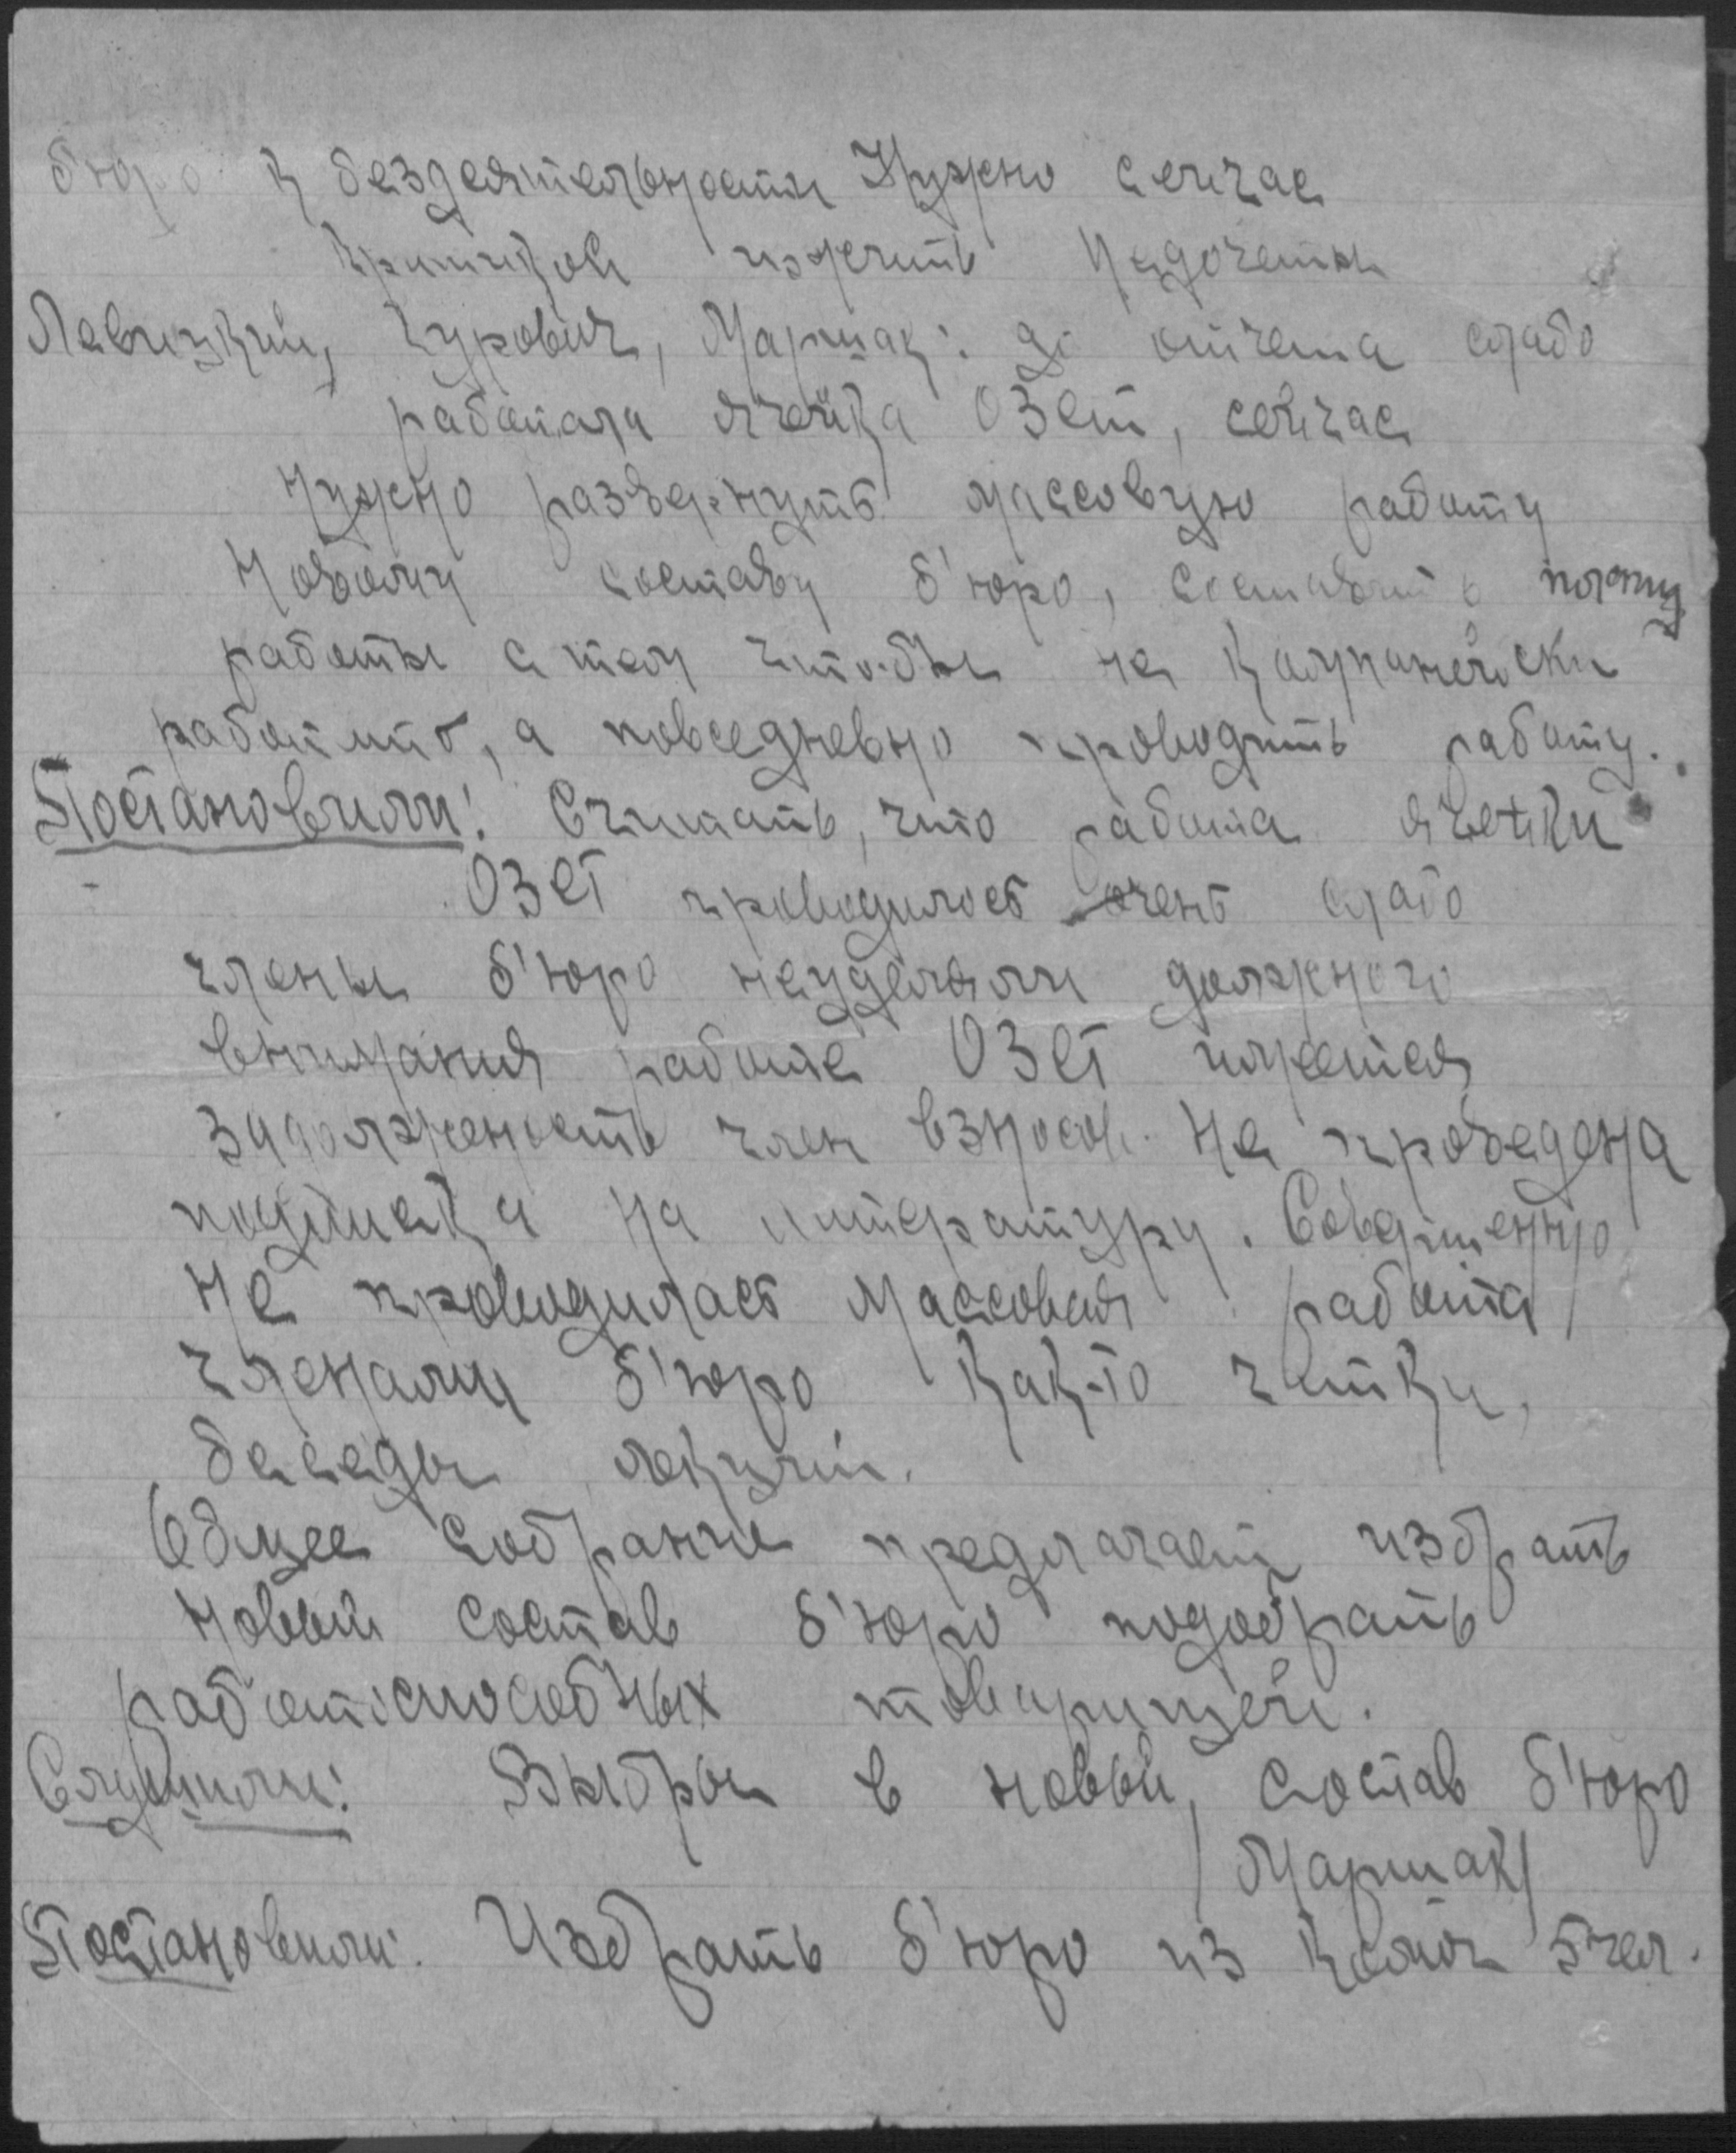 бюро к бездеятельности Нужно сейчас
критикой изжить недочеты
Левицкий, Гурович, Маршак: до отчета слабо
работала ячейка Озет, сейчас
нужно развернуть массовую работу
новому составу б'юро, составить
работы с тем что-бы не кампанейски
работать, а повседневно проводить работу.
Постановили: Считать, что работа ячейки
ОЗЕТ проводилось очень слабо
члены б'юро неуделяли должного
внимания работе ОЗЕТ имеется
задолженость член взносов. Не проведена
подписка на литературу. Совершенно
не проводилась массовая работа
членами б'юро как-то читки,
беседы лекций.
Общее собрание предлагает избрать
новый состав б'юро подобрать
работоспособных товарищей.
Слушали: Выборы в новый состав б'юро
/Маршак/
Постановили: Избрать б'юро из 5 чел.